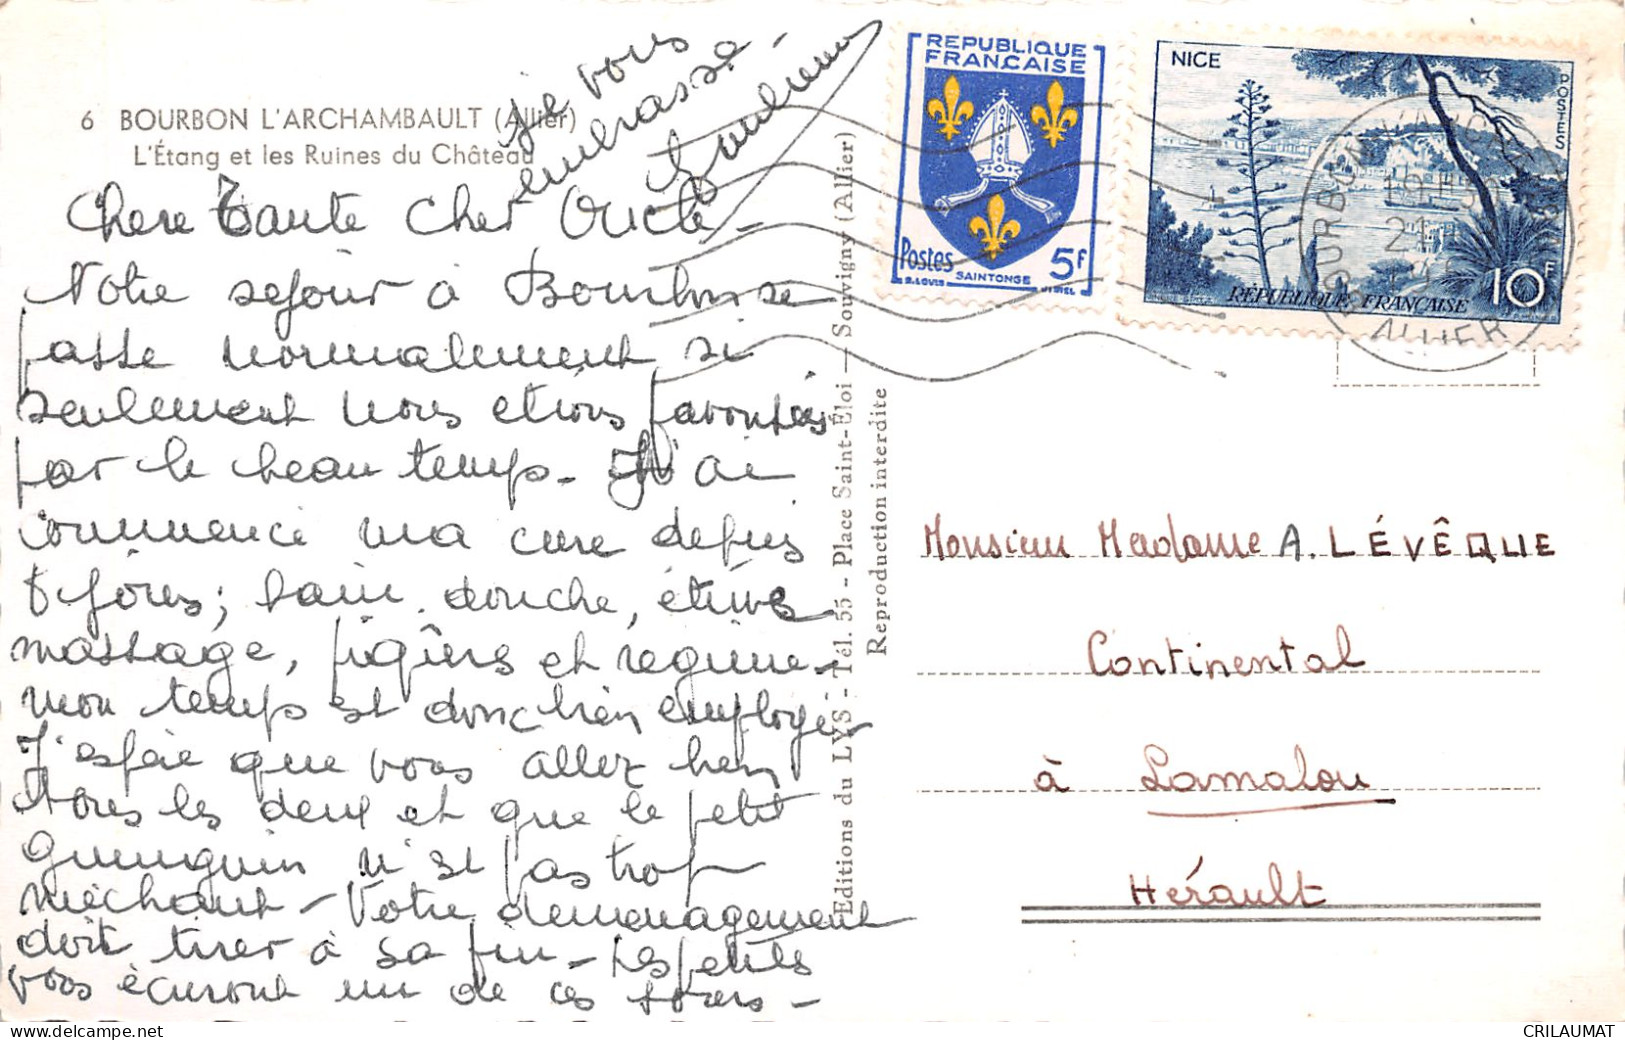 6 BOURBON L'ARCHAMBAULT (Allier)
L'Étang et les Ruines du Château
Chere Tante Cher Oncle -
Notre sejour à Bourbon se
passe normalement si
seulement nous etions favorisées
par le beau temps - J'ai
commencé ma cure depuis
8 jours; bain, douche, étuves
massage, piqûres et regime -
mon temps est donc bien employé -
J'espère que vous allez bien
tous les deux et que le petit
n'est pas trop
méchant - Votre demenagement
doit tirer à sa fin - Les petites
vous écriront un de ces jours -
je vous
embrasse -
Editions du LYS - Tél. 55 - Place Saint-Éloi - Souvigny (Allier)
Reproduction interdite
REPUBLIQUE
FRANÇAISE
Postes
SAINTONGE
5F
NICE
POSTES
RÉPUBLIQUE FRANÇAISE
10F
ALLIER
Monsieur Madame A. LÉVÊQUE
Continental
à Lamalou
Hérault
CRILAUMAT